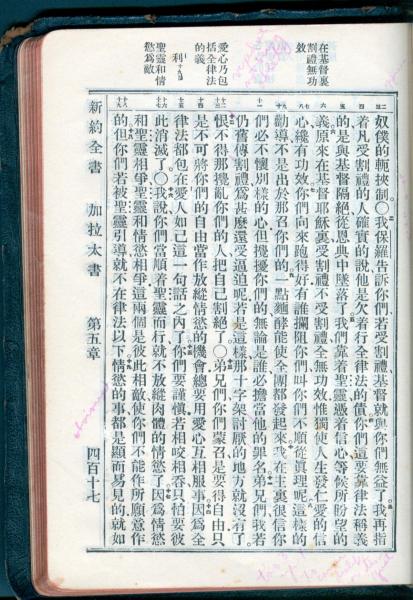 在基督裏
割禮無功
效
愛心乃包
括全律法
的義
利十九章
聖靈和情
慾爲敵
奴僕的軛挾制〇我保羅告訴你們若受割禮基督就與你們無益了我再指
着凡受割禮的人確實的說他是欠着行全律法的債你們這要靠律法稱義
的是與基督隔絕從恩典中墜落了我們靠着聖靈憑着信心等候所盼望的
義原來在基督耶穌裏受割禮不受割禮全無功效惟獨使人生發仁愛的信
心纔有功效你們向來跑得好有誰攔阻你們叫你們不順從眞理呢這樣的
勸導不是出於那召你們的一點麵酵能使全團都發起來我在主裏很信你
們必不懷別樣的心但攪擾你們的無論是誰必擔當他的罪名弟兄們我若
仍舊傳割禮爲甚麼還受逼迫呢若是這樣那十字架討厭的地方就沒有了
恨不得那攪亂你們的人把自己割絕了〇弟兄們你們蒙召是要得自由只
是不可將你們的自由當作放縱情慾的機會總要用愛心互相服事因爲全
律法都包在愛人如己這一句話之內了你們要謹愼若相咬相吞只怕要彼
此消滅了〇我說你們當順着聖靈而行就不放縱肉體的情慾了因爲情慾
和聖靈相爭聖靈和情慾相爭這兩個是彼此相敵使你們不能作所願意作
的但你們若被聖靈引導就不在律法以下情慾的事都是顯而易見的就如
新約全書 加拉太書 第五章 四百十七